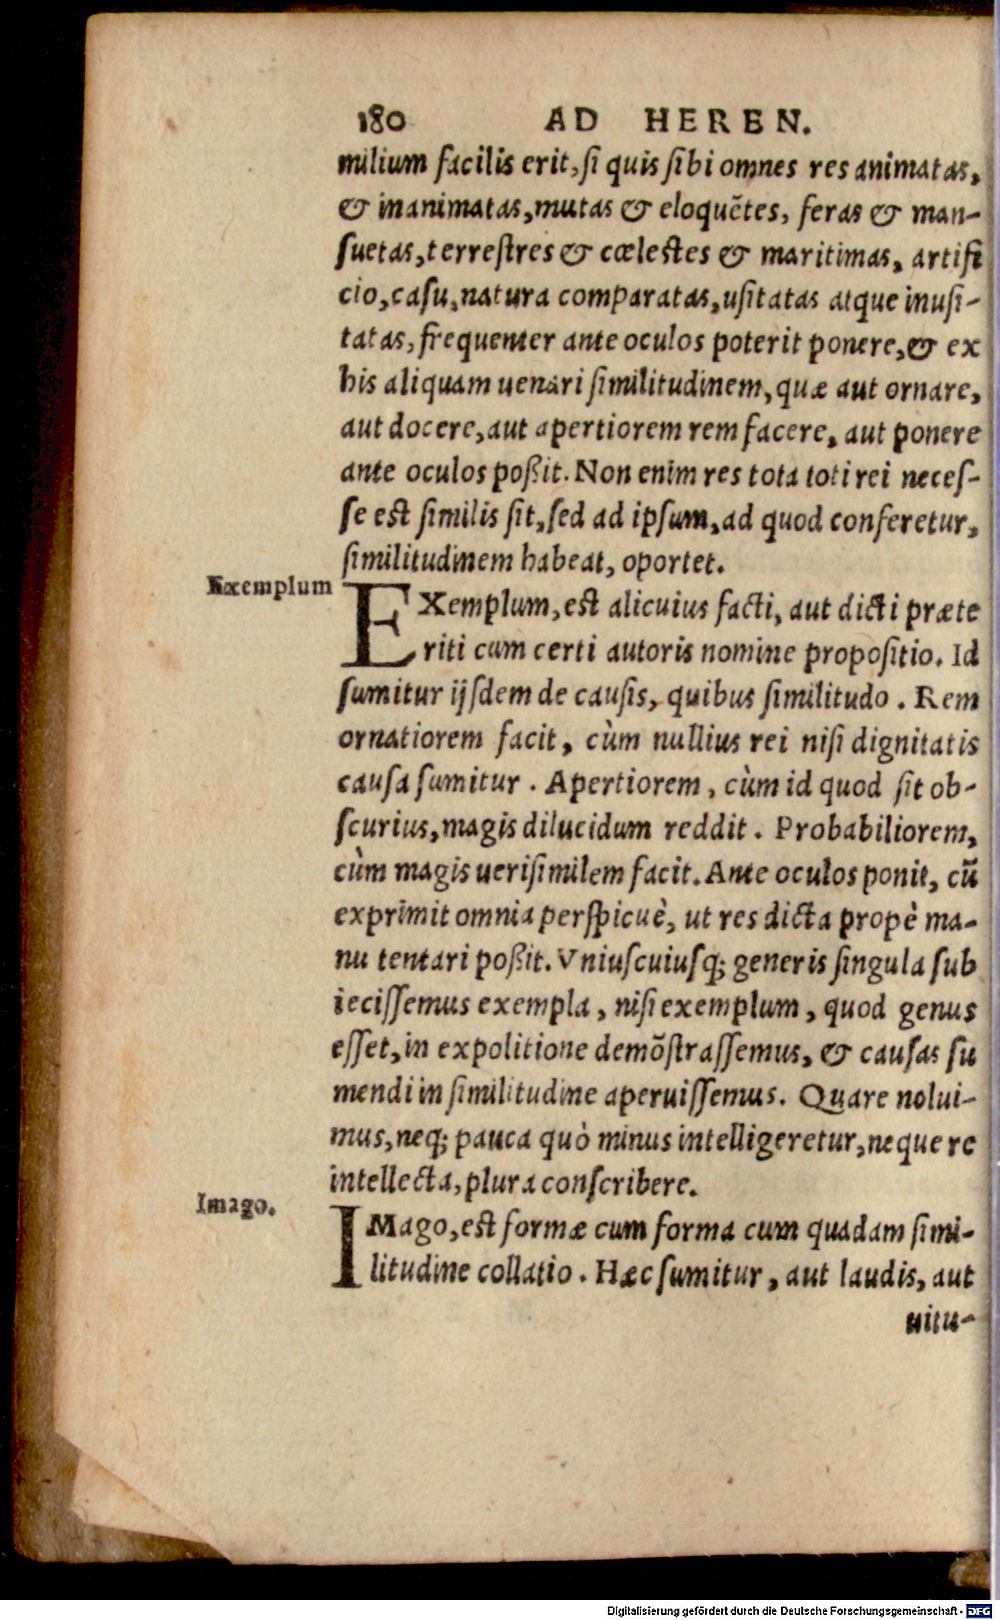 180 AD HEREN.
milium facilis erit, ſi quis ſibi omnes res animatas,
& inanimatas, mutas & eloquẽtes, feras & man-
ſuetas, terreſtres & cœleſtes & maritimas, artifi
cio, caſu, natura comparatas, uſitatas atque inuſi-
tatas, frequenter ante oculos poterit ponere, & ex
his aliquam uenari ſimilitudinem, quæ aut ornare,
aut docere, aut apertiorem rem facere, aut ponere
ante oculos poßit. Non enim res tota toti rei neceſ-
ſe eſt ſimilis ſit, ſed ad ipſum, ad quod conferetur,
ſimilitudinem habeat, oportet.
Exemplum
EXemplum, eſt alicuius facti, aut dicti præte
riti cum certi autoris nomine propoſitio. Id
ſumitur ijſdem de cauſis, quibus ſimilitudo. Rem
ornatiorem facit, cùm nullius rei niſi dignitatis
cauſa ſumitur. Apertiorem, cùm id quod ſit ob-
ſcurius, magis dilucidum reddit. Probabiliorem,
cùm magis ueriſimilem facit. Ante oculos ponit, cũ
exprimit omnia perſpicuè, ut res dicta propè ma-
nu tentari poßit. Vniuſcuiuſq; generis ſingula ſub
ieciſſemus exempla, niſi exemplum, quod genus
eſſet, in expolitione demõſtraſſemus, & cauſas ſu
mendi in ſimilitudine aperuiſſemus. Quare nolui-
mus, neq; pauca quò minus intelligeretur, neque re
intellecta, plura conſcribere.
Imago.
IMago, eſt formæ cum forma cum quadam ſimi-
litudine collatio. Hæc ſumitur, aut laudis, aut
uitu-
Digitalisierung gefördert durch die Deutsche Forschungsgemeinschaft - DFG